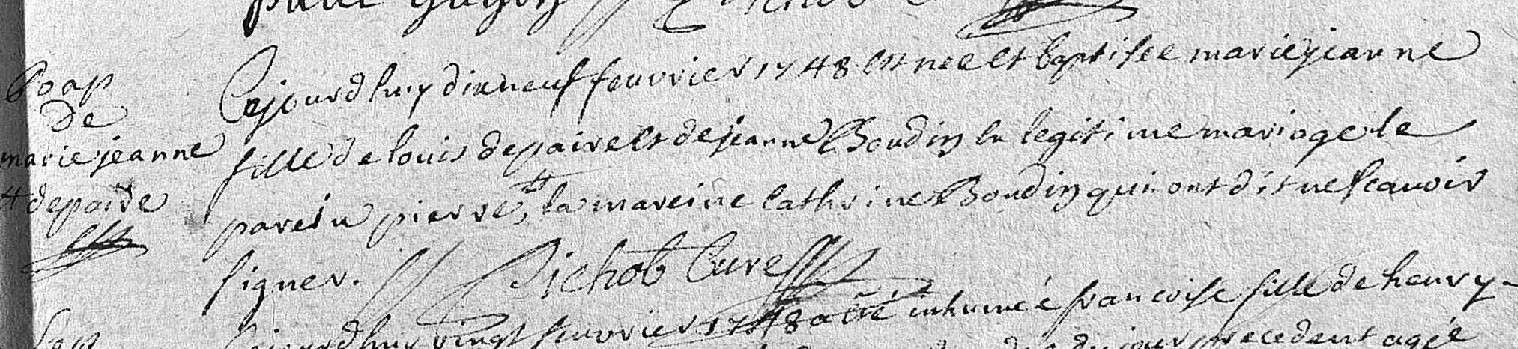 Bap
de
marie jeanne
depaire
Cejourdhuy dixneuf feuvrier 1748 est nee et baptisee marie jeanne
fille de louis depaire et de jeanne Boudin en legitime mariage le
parein pierre, la mareine Cathrine Boudin qui ont dit ne scauoir
signer. Pichot Curé
Cejourdhuy vingt feuvrier 1748 a été inhumée francoise fille de henry
jour precedent agée